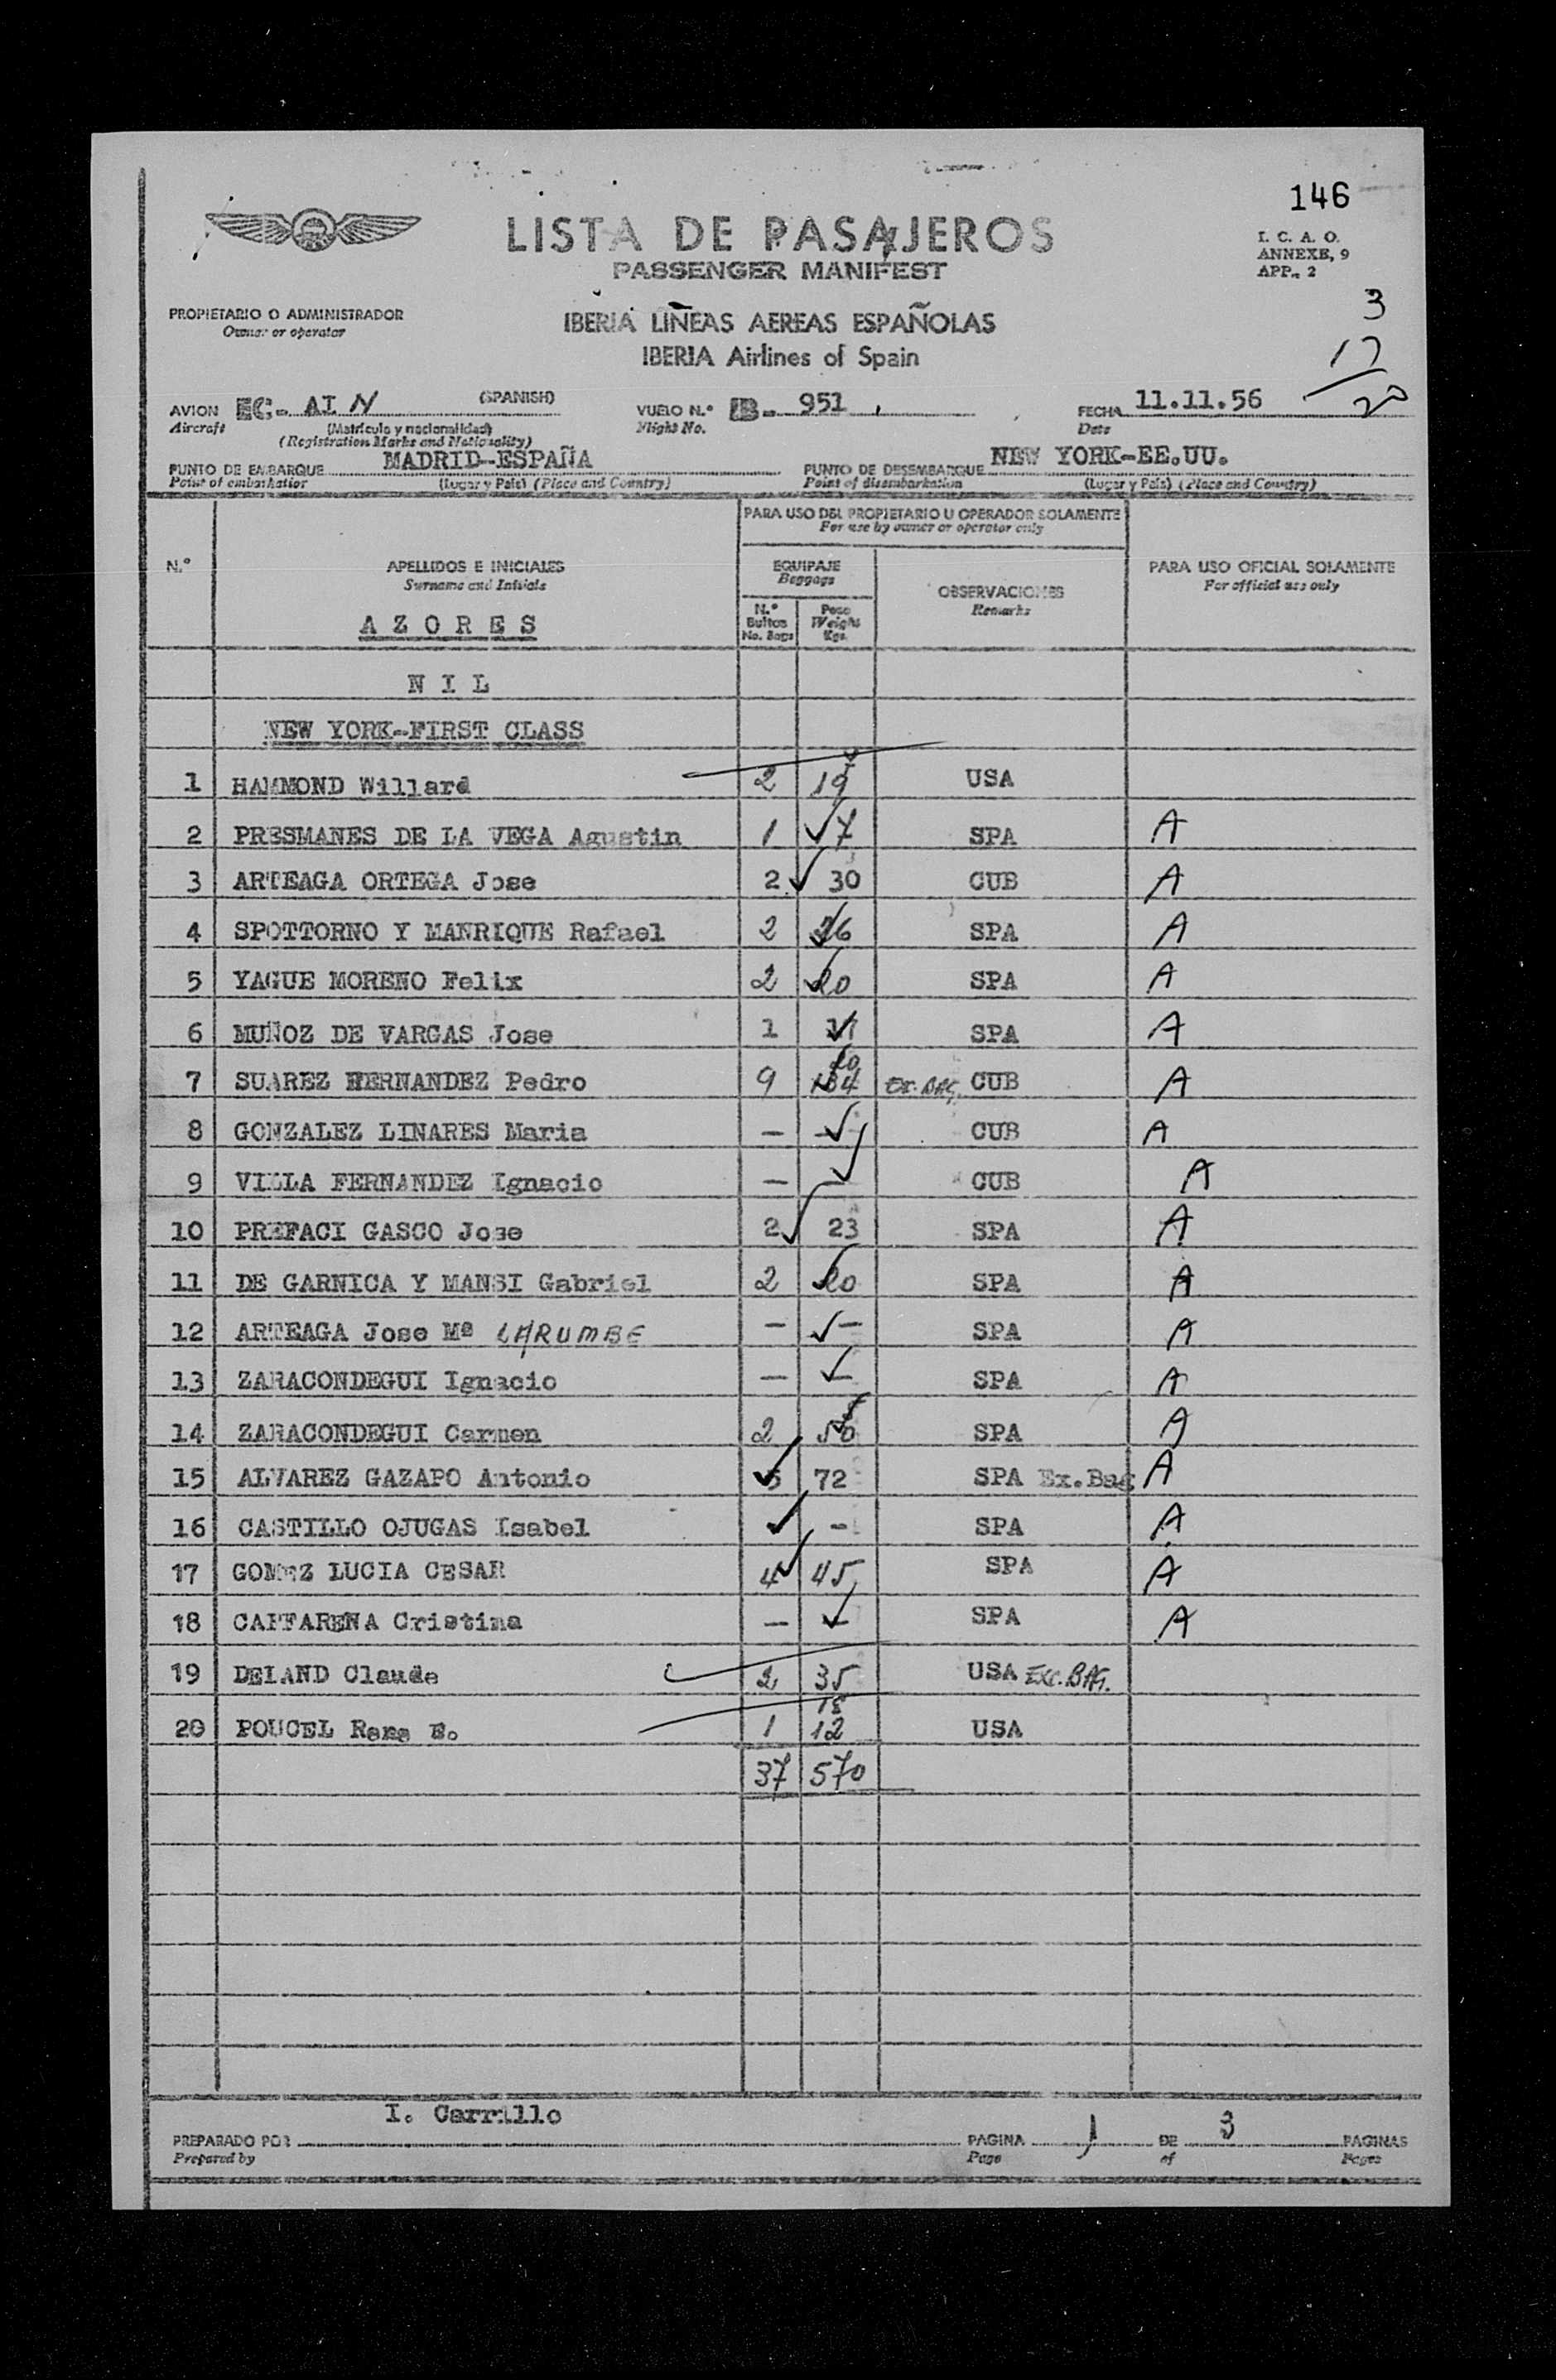 146
LISTA DE PASAJEROS
PASSENGER MANIFEST
I. C. A. O.
ANNEXE, 9
APP., 2
3
17
20
PROPIETARIO O ADMINISTRADOR
Owner or operator
IBERIA LIÑEAS AEREAS ESPAÑOLAS
IBERIA Airlines of Spain
AVION EC- AI N (SPANISH) VUELO N.° IB- 951 FECHA 11.11.56
Aircraft (Matrícula y nacionalidad) Flight No. Date
(Registration Marks and Nationality)
PUNTO DE EMBARQUE MADRID-ESPAÑA PUNTO DE DESEMBARQUE NEW YORK-EE.UU.
Point of embarkation (Lugar y País) (Place and Country) Point of disembarkation (Lugar y País) (Place and Country)
PARA USO DEL PROPIETARIO U OPERADOR SOLAMENTE
For use by owner or operator only
N.° APELLIDOS E INICIALES EQUIPAJE OBSERVACIONES PARA USO OFICIAL SOLAMENTE
Surname and Initials Baggage Remarks For official use only
N.° Bultos No. Bags Peso Weight Kgs.
AZORES
NIL
NEW YORK-FIRST CLASS
1 HAMMOND Willard 2 19 USA
2 PRESMANES DE LA VEGA Agustin 1 7 SPA A
3 ARTEAGA ORTEGA Jose 2 30 CUB A
4 SPOTTORNO Y MANRIQUE Rafael 2 26 SPA A
5 YAGUE MORENO Felix 2 20 SPA A
6 MUÑOZ DE VARGAS Jose 1 SPA A
7 SUAREZ HERNANDEZ Pedro 9 134 EX. BAG. CUB A
8 GONZALEZ LINARES Maria — — CUB A
9 VILLA FERNANDEZ Ignacio — — CUB A
10 PREFACI GASCO Jose 2 23 SPA A
11 DE GARNICA Y MANSI Gabriel 2 20 SPA A
12 ARTEAGA Jose Mª LARUMBE — — SPA A
13 ZARACONDEGUI Ignacio — — SPA A
14 ZARACONDEGUI Carmen 2 50 SPA A
15 ALVAREZ GAZAPO Antonio 5 72 SPA Ex.Bag A
16 CASTILLO OJUGAS Isabel - SPA A
17 GOMEZ LUCIA CESAR 4 45 SPA A
18 CAFFARENA Cristina — — SPA A
19 DELAND Claude 2 35 USA EXC.BAG.
20 POUCEL Rene E. 1 12 USA
37 570
I. Carrillo
PREPARADO POR PAGINA 1 DE 3 PAGINAS
Prepared by Page of Pages